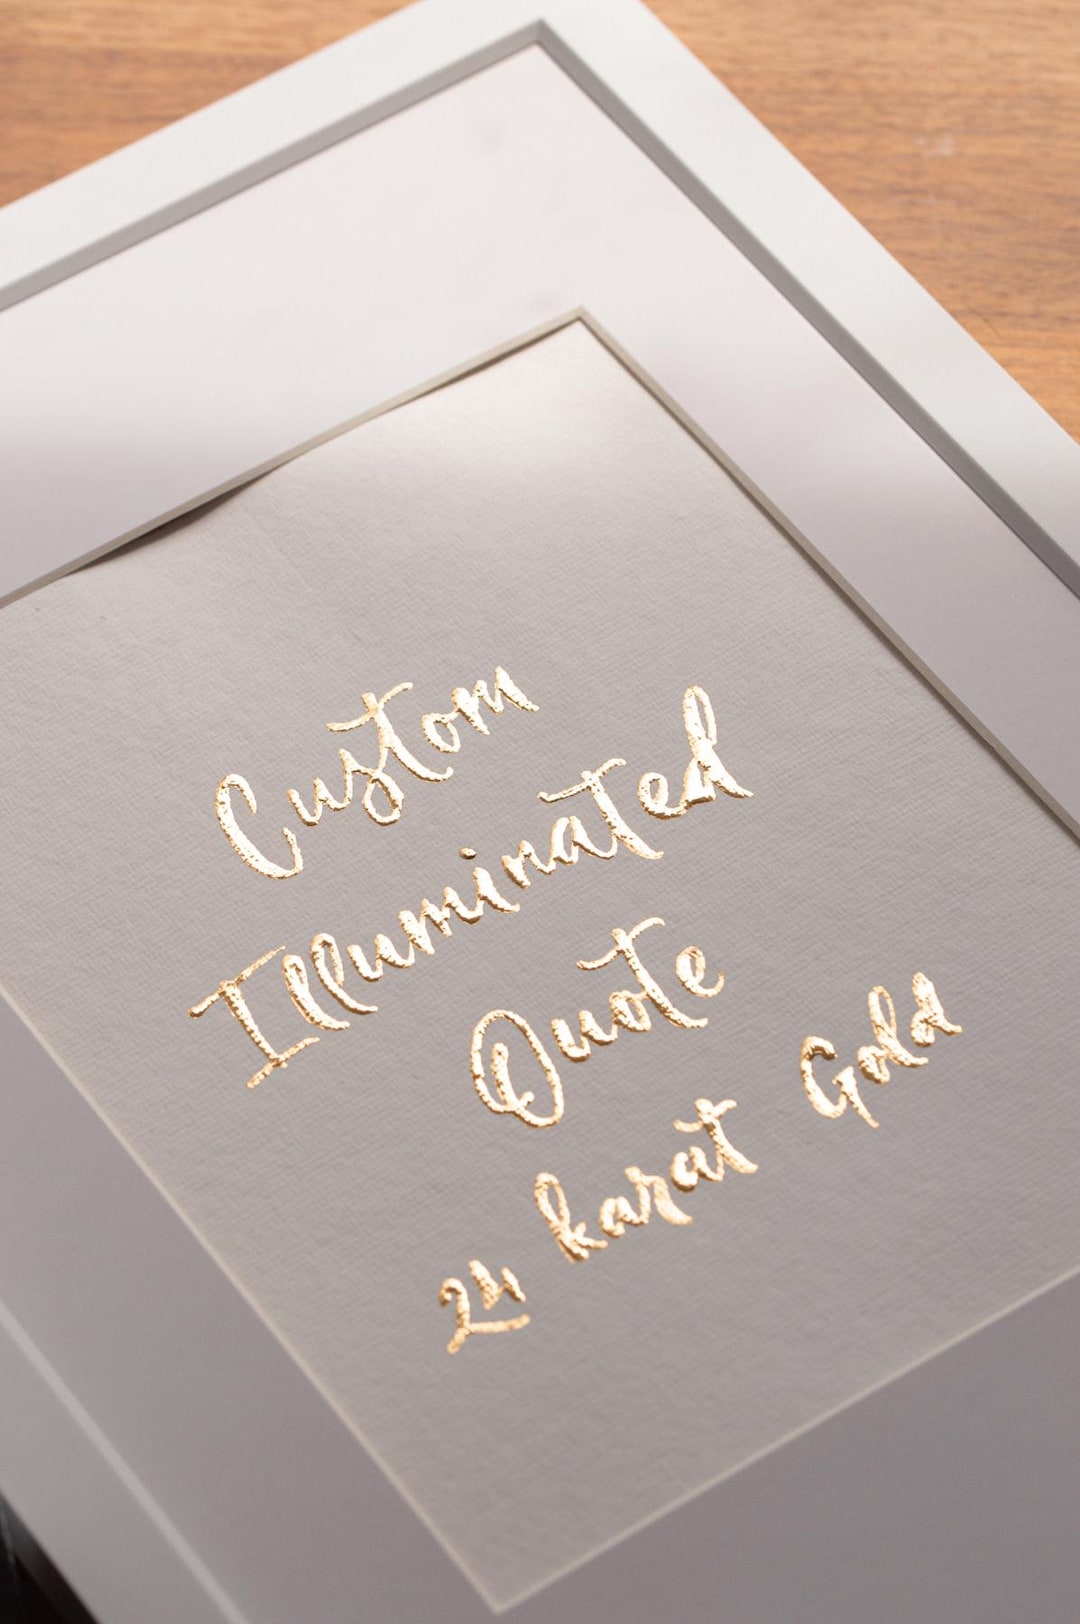 Custom
Illuminated
Quote
24 karat Gold